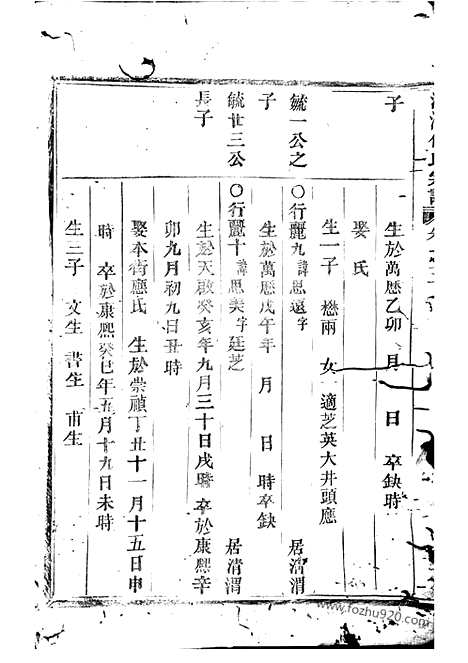 子
生於萬歷乙卯 月 日 卒缺時
娶 氏
生一子 懋兩 女一適芝英大井頭應
毓一公之
子
○行麗九諱思遠字 居清渭
生於萬歷戊午年 月 日 時卒缺
毓廿三公
長子
○行麗十諱思美字廷芝 居清渭
生於天啟癸亥年九月三十日戌時 卒於康熙辛
卯九月初九日丑時
娶本街應氏 生於崇禎丁丑十一月十五日申
時 卒於康熙癸巳年五月十九日未時
生三子 文生 書生 甫生
www.fozhu920.com